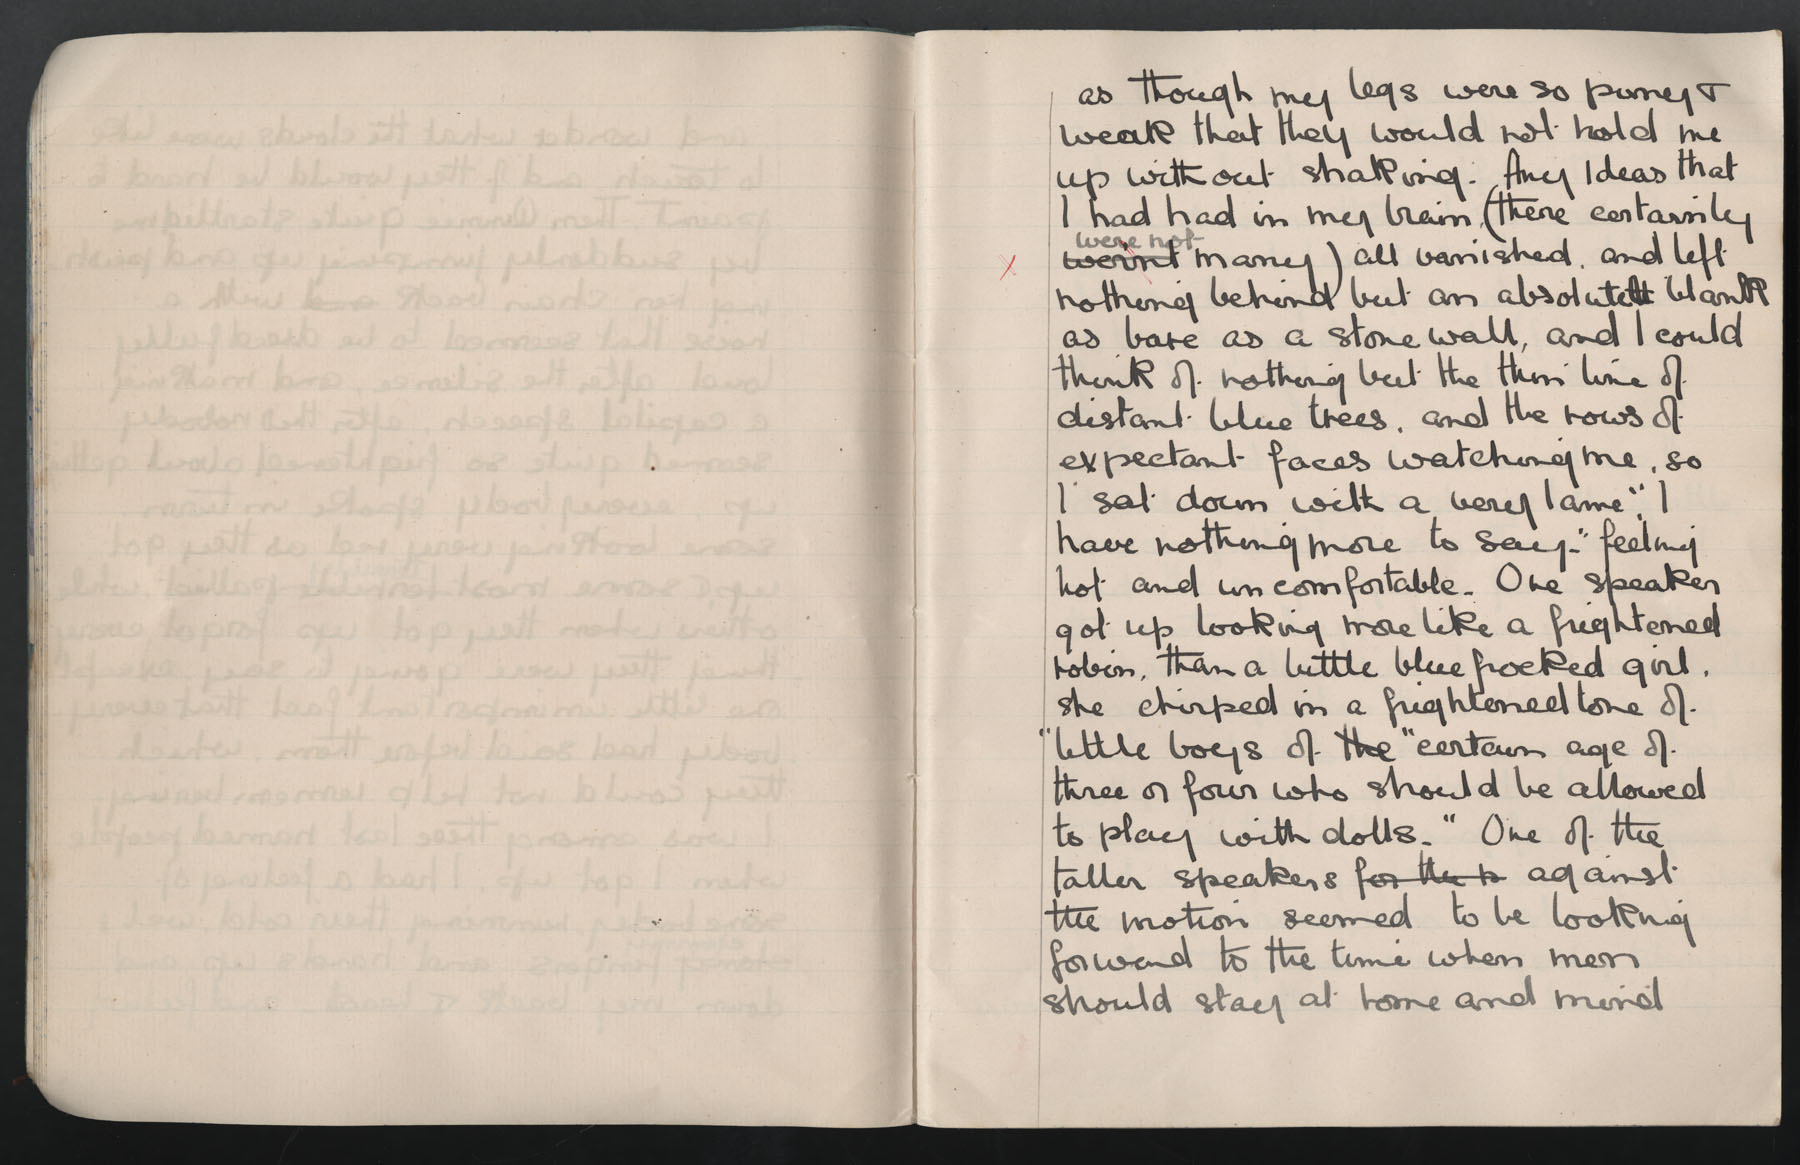 as though my legs were so puney &
weak that they would not hold me
up without shaking. Any Ideas that
I had had in my brain, (there certainly
were not
wernt many) all vanished. and left
nothing behind but an absolute blank
as bare as a stone wall, and I could
think of nothing but the thin line of
distant blue trees, and the rows of
expectant faces watching me, so
I sat down with a very lame "I
have nothing more to say." feeling
hot and uncomfortable. One speaker
got up looking more like a frightened
robin, than a little blue frocked girl.
she chirped in a frightened tone of
"little boys of the "certain age of
three or four who should be allowed
to play with dolls." One of the
taller speakers for the against
the motion seemed to be looking
forward to the time when men
should stay at home and mind